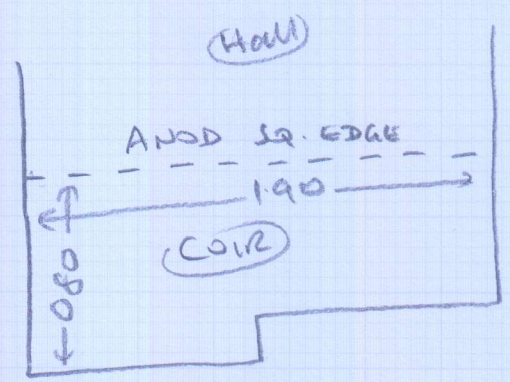 Hall
ANOD SQ. EDGE
1.90
COIR
080